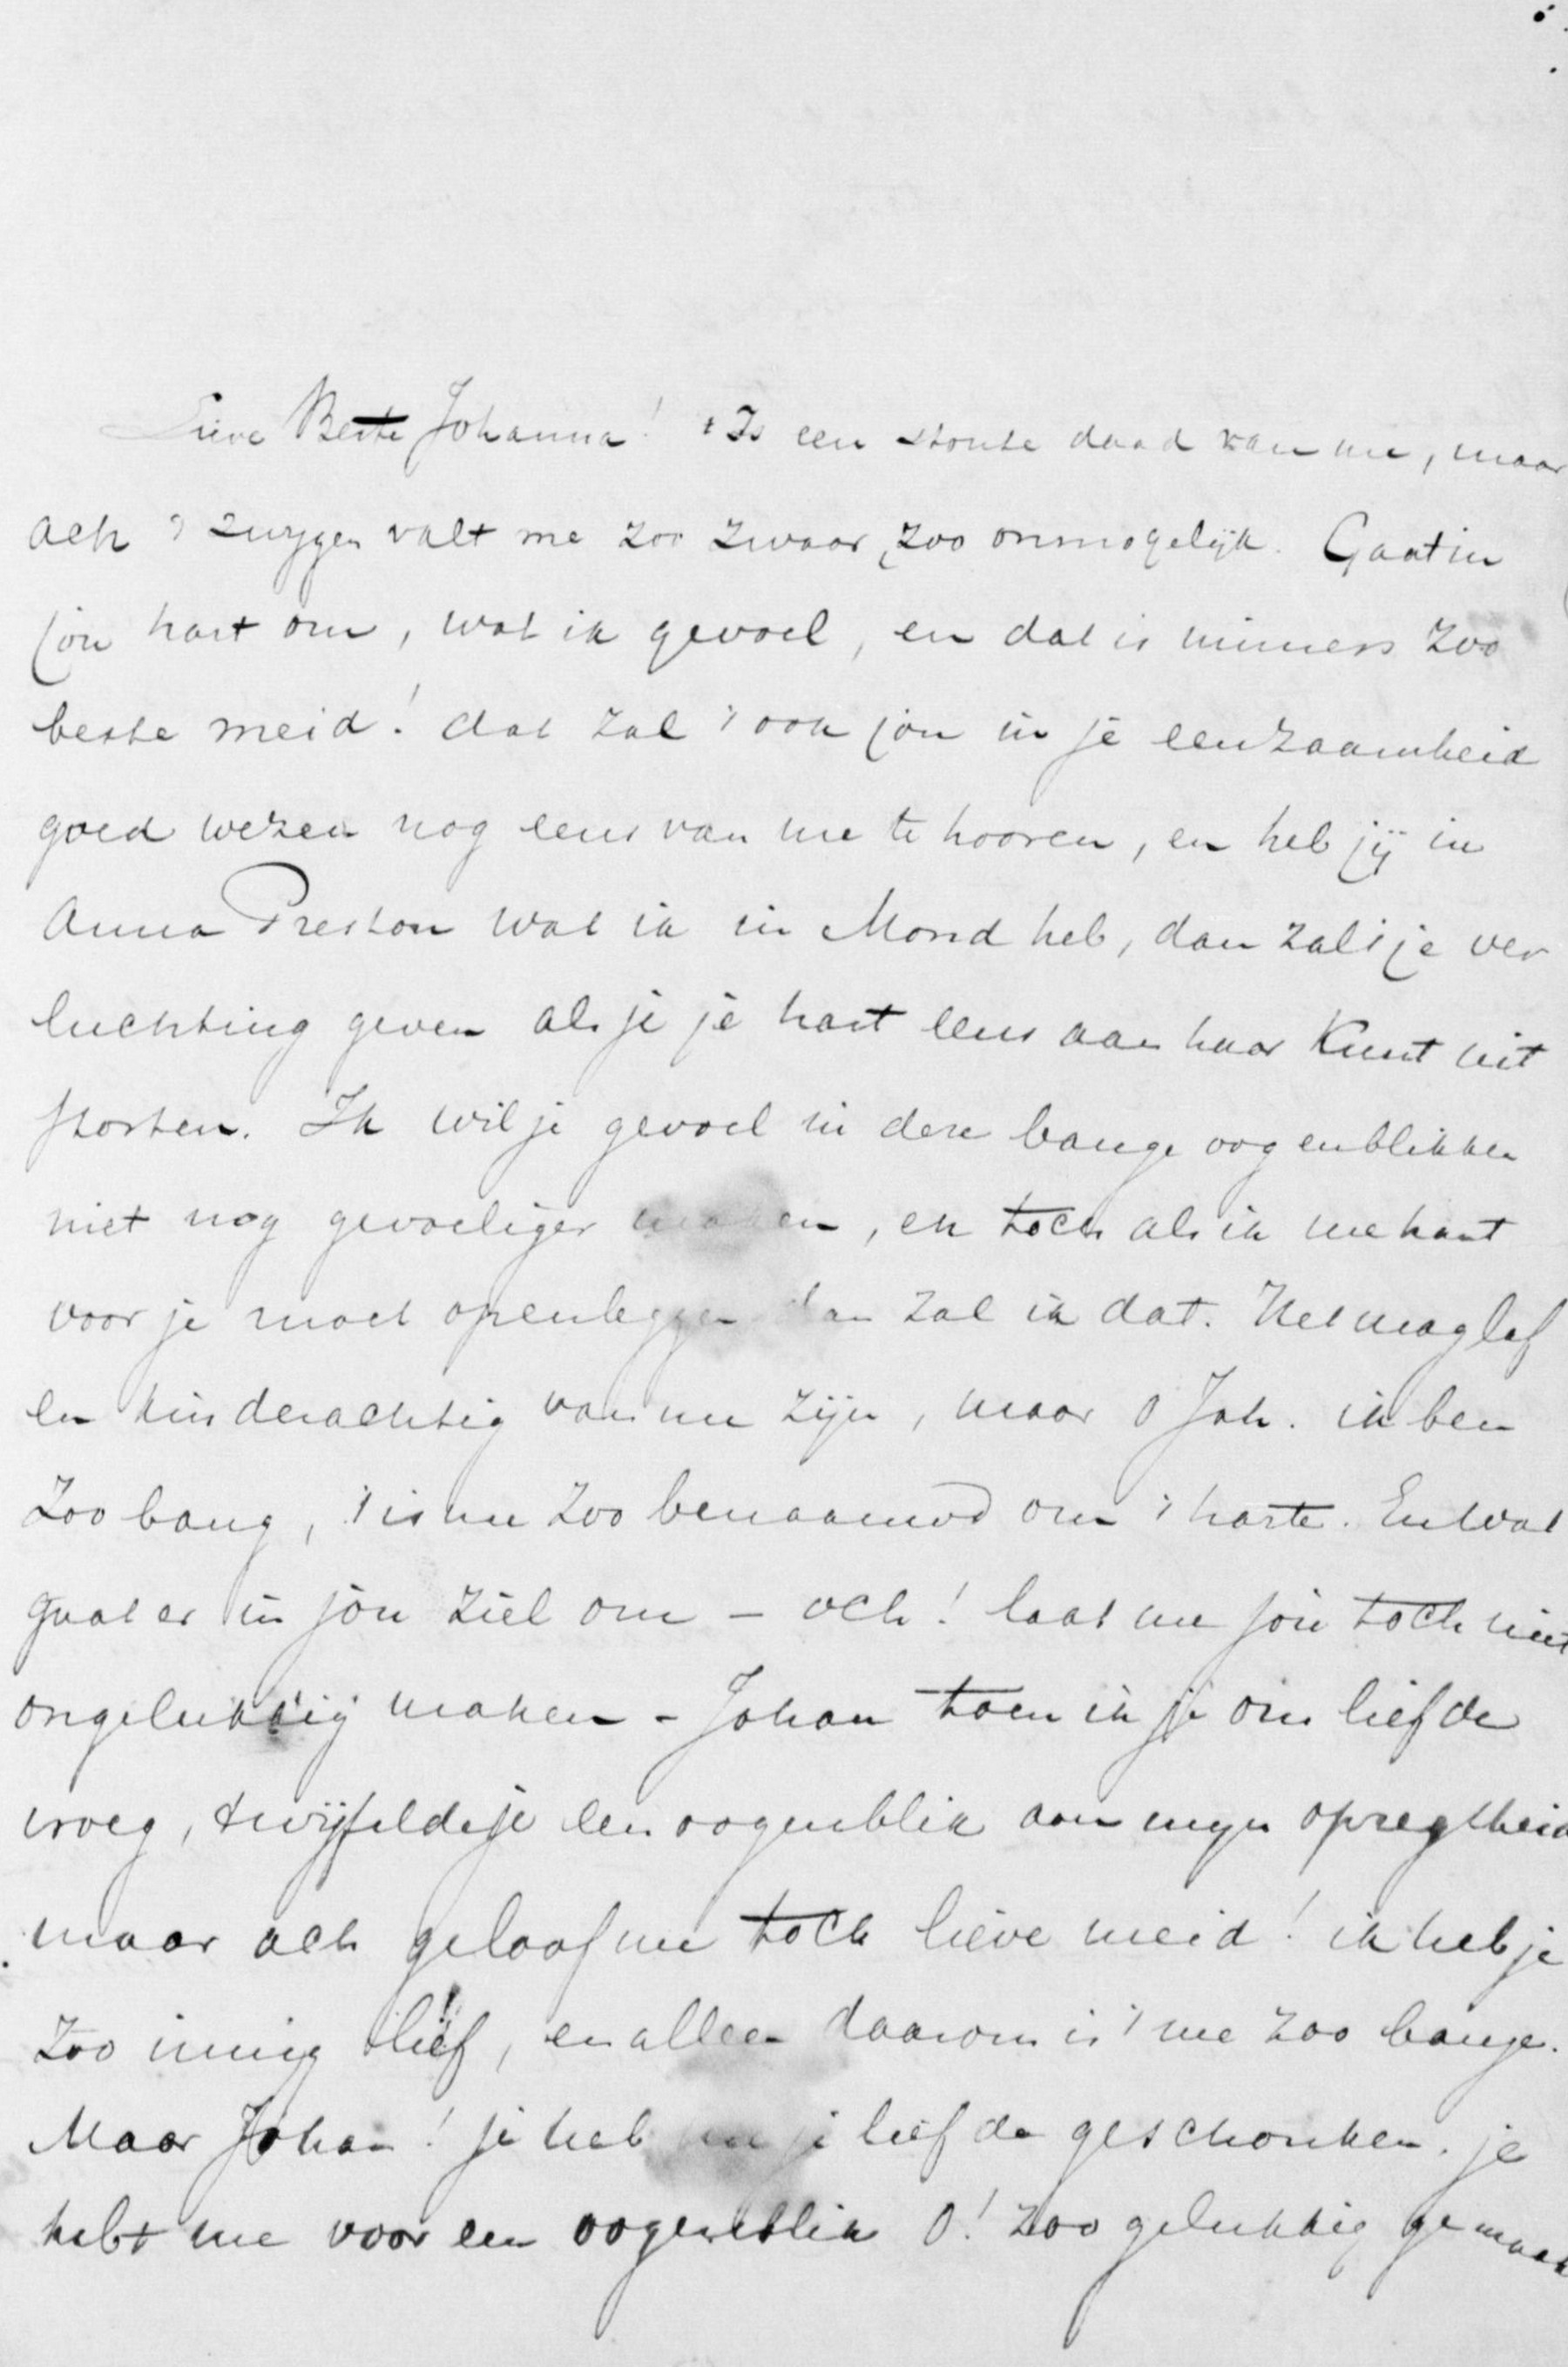 Lieve Beste Johanna! 't Is een stoute daad van me, maar
ach 't zwygen valt me zoo zwaar, zoo onmogelijk. Gaat in
jou hart om, wat ik gevoel, en dat is immers zoo
beste meid! dat zal 't ook jou in je eenzaamheid
goed wezen nog eens van me te hooren, en heb jij in
Anna Preston wat ik in Mond heb, dan zal 't je ver
luchting geven als je je hart eens aan haar kunt uit
storten. Ik wil je gevoel in deze bange oogenblikken
niet nog gevoeliger maken, en toch als ik me hart
voor je moet openleggen dan zal ik dat. Het mag laf
en kinderachtig van me zijn, maar o Joh. ik ben
zoo bang, 't is me zoo benaauwd om 't harte. En wat
gaat er in jou ziel om – och! laat me jou toch niet
ongelukkig maken – Johan toen ik je om liefde
vroeg, twijfelde je een oogenblik aan myn opregtheid
maar ach geloof me toch lieve meid! ik heb je
zoo innig lief, en alleen daarom is 't me zoo bange.
Maar Johan! je heb me je liefde geschonken. je
hebt me voor een oogenblik O! zoo gelukkig gemaak